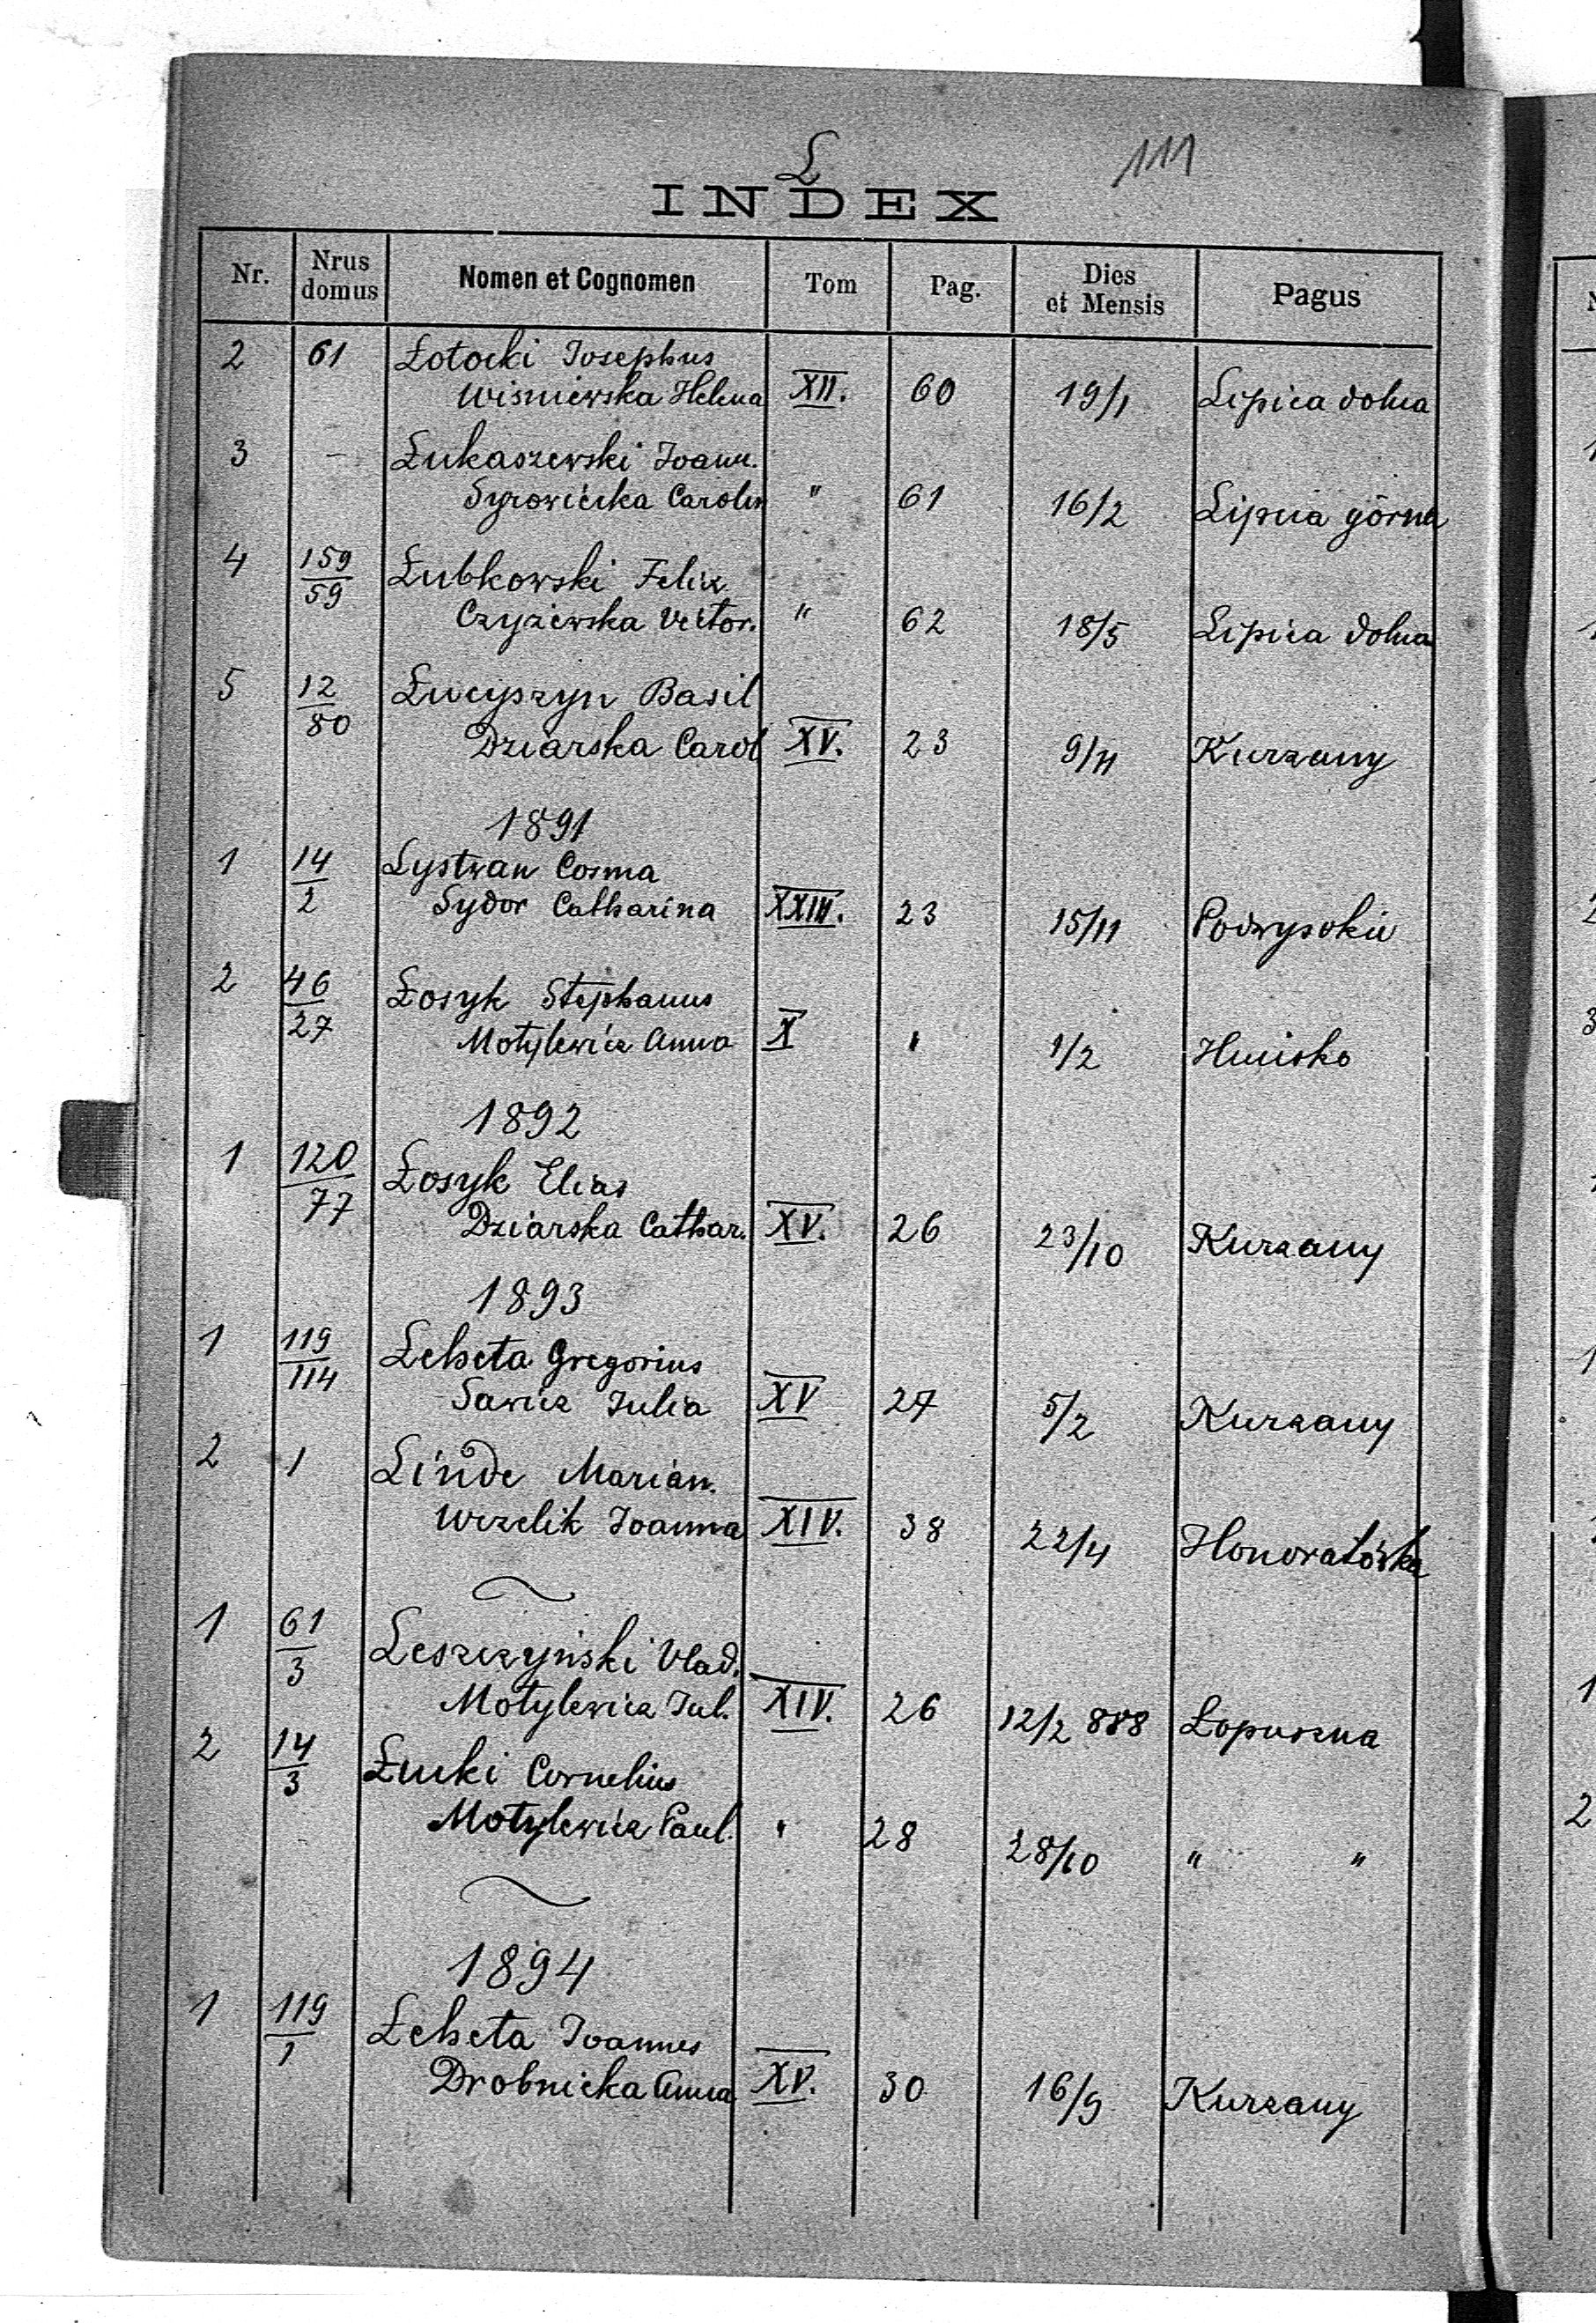 L
111
INDEX
Nr. Nrus domus Nomen et Cognomen Tom Pag. Dies et Mensis Pagus
2 61 Łotocki Josephus
Wiśniewska Helena XII. 60 19/1 Lipica dolna
3 – Łukaszewski Joann.
Syrowicka Carolin " 61 16/2 Lipica górna
4 159/59 Łubkowski Felix
Czyżewska Victor. " 62 18/5 Lipica dolna
5 12/80 Łucyszyn Basil
Dziarska Carol XV. 23 9/11 Kurzany
1891
1 14/2 Lystwan Cosma
Sydor Catharina XXIII. 23 15/11 Podwysokie
2 46/27 Łosyk Stephanus
Motylewicz Anna X " 1/2 Hucisko
1892
1 120/77 Łosyk Elias
Dziarska Cathar. XV. 26 23/10 Kurzany
1893
1 119/114 Łeheta Gregorius
Sawicz Julia XV 27 5/2 Kurzany
2 1 Linde Marian.
Wrzelik Joanna XIV. 38 22/4 Honoratówka
1 61/3 Leszczyński Vlad.
Motylewicz Jul. XIV. 26 12/2 888 Lopuszna
2 14/3 Łucki Cornelius
Motylewicz Paul. " 28 28/10 " "
1894
1 119/1 Łeheta Joannes
Drobnicka Anna XV. 30 16/9 Kurzany